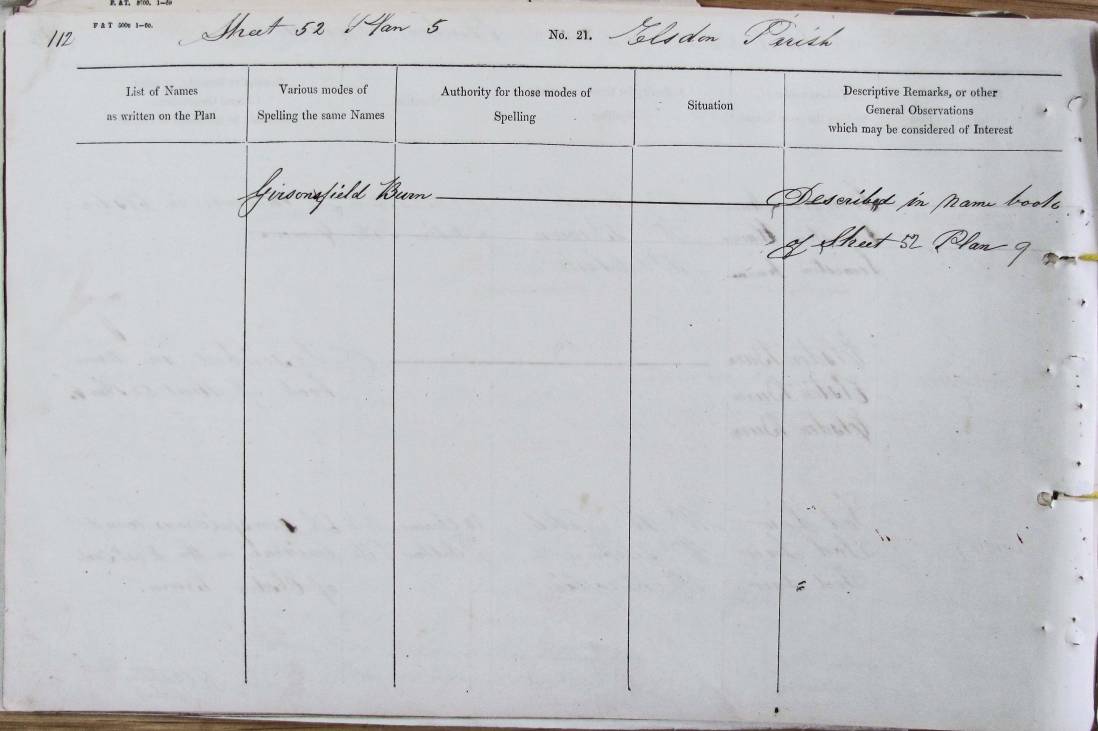 112 F & T 5000 1—60. Sheet 52 Plan 5 No. 21. Elsdon Parish
List of Names
as written on the Plan
Various modes of
Spelling the same Names
Authority for those modes of
Spelling
Situation
Descriptive Remarks, or other
General Observations
which may be considered of Interest
Girsonsfield Burn Described in name book
of Sheet 52 Plan 9